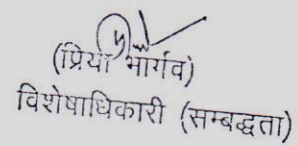 (प्रिया भार्गव)
विशेषाधिकारी (सम्बद्धता)